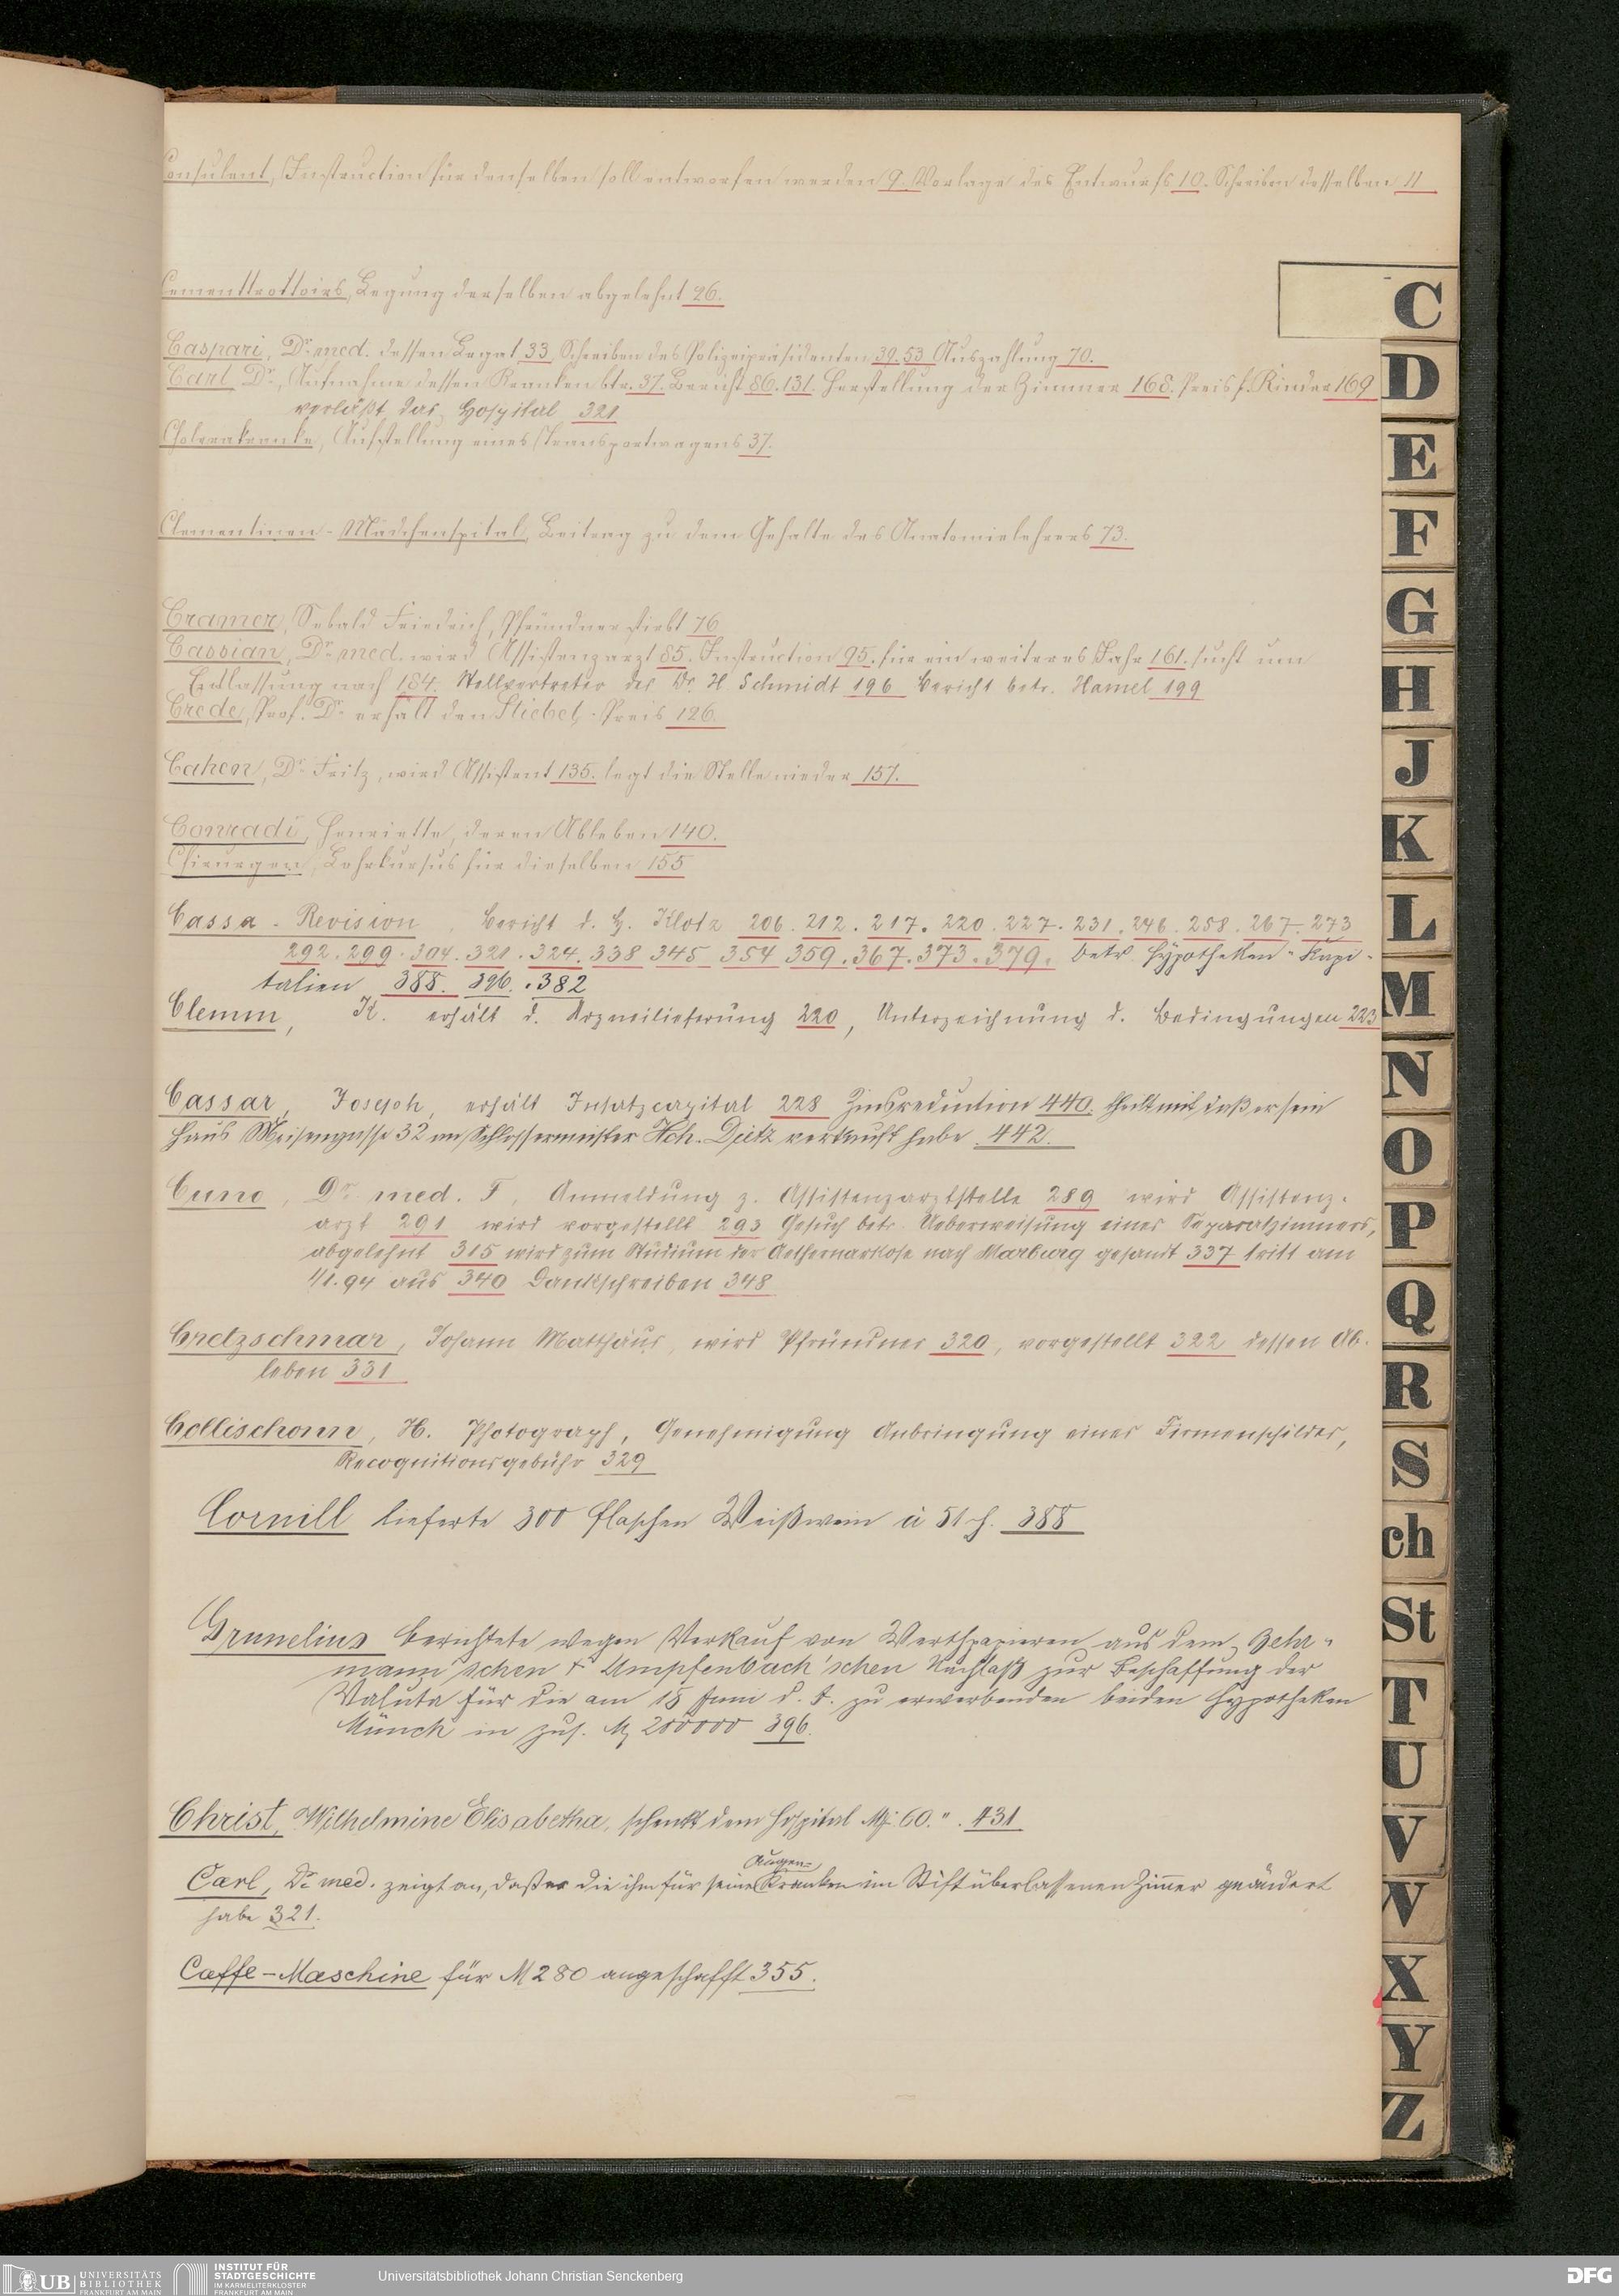 Consulent, Instruction für denselben soll entworfen werden 9. Vorlage des Entwurfs 10. Schreiben desselben 11
Cementtrottoirs, Legung derselben abgelehnt 26.
Caspari, Dr. med. dessen Legat 33. Schreiben des Polizeipräsidenten 39. 53 Auszahlung 70.
Carl Dr., Aufnahme dessen Kranken btr. 37. Bericht 86. 131. Herstellung der Zimmer 168. Preis f. Kinder 169
verläßt das Hospital 321
Cholerakranke, Aufstellung eines Transportwagens 37.
Clementinen-Mädchenspital, Beitrag zu dem Gehalte des Anatomielehrers 73.
Cramer, Sebald Friedrich, Pfründner stirbt 76
Cassian, Dr. med. wird Assistenzarzt 85. Instruction 95. für ein weiteres Jahr 161. sucht um
Entlassung nach 184. Stellvertreter des Dr. H Schmidt 196 Bericht betr. Hamel 199
Crede, Prof. Dr. erhält den Stiebel-Preis 126.
Cahen, Dr. Fritz, wird Assistent 135. legt die Stelle nieder 157.
Conradi, Henriette, deren Ableben 140.
Chirurgen, Lehrkursus für dieselben 155
Cassa-Revision, Bericht d. H. Klotz 206. 212. 217. 220. 227. 231. 246. 258. 267. 273
292. 299. 304. 321. 324. 338 345 354 359. 367. 373. 379. betr. Hypotheken-Kapi-
talien 388. 396. 382
Clemm, K. erhält d. Arzneilieferung 220, Unterzeichnung d. Bedingungen 223
Cassar, Joseph, erhält Insatzcapital 228 Zinsreduction 440. theilt mit daß er sein
Haus Meisengasse 32 an Schlossermeister Hch. Dietz verkauft habe 442.
Cuno, Dr. med. F, Anmeldung z. Assistenzarztstelle 289 wird Assistenz-
arzt 291 wird vorgestellt 293 Gesuch betr. Ueberweisung eines Separatzimmers,
abgelehnt 315 wird zum Studium der Aethernarkose nach Marburg gesandt 337 tritt am
1/1. 94 aus 340 Dankschreiben 348
Cretzschmar, Johann Matthäus, wird Pfründner 320, vorgestellt 322 dessen Ab-
leben 331
Collischonn, H. Photograph, Genehmigung Anbringung eines Firmenschildes,
Recognitionsgebühr 329
Cornill lieferte 300 Flaschen Weißwein à 51 ₰. 388
Grunelius berichtete wegen Verkauf von Werthpapieren aus dem Beth-
mann'schen & Umpfenbach'schen Nachlaß zur Beschaffung der
Valuta für die am 15 Juni d. J. zu erwerbenden beiden Hypotheken
Münch in zus. M 200000 396.
Christ, Wilhelmine Elisabetha, schenkt dem Hospital M. 60.". 431
Augen-
Carl, Dr. med. zeigt an, daß er die ihm für seine Kranken im Stift überlassenen Zimmer geändert
habe 321.
Caffe-Maschine für M 280 angeschafft 355.
C
D
E
F
G
H
J
K
L
M
N
O
P
Q
R
S
ch
St
T
U
V
W
X
Y
Z
UB UNIVERSITÄTS
BIBLIOTHEK
FRANKFURT AM MAIN
INSTITUT FÜR
STADTGESCHICHTE
IM KARMELITERKLOSTER
FRANKFURT AM MAIN
Universitätsbibliothek Johann Christian Senckenberg
DFG